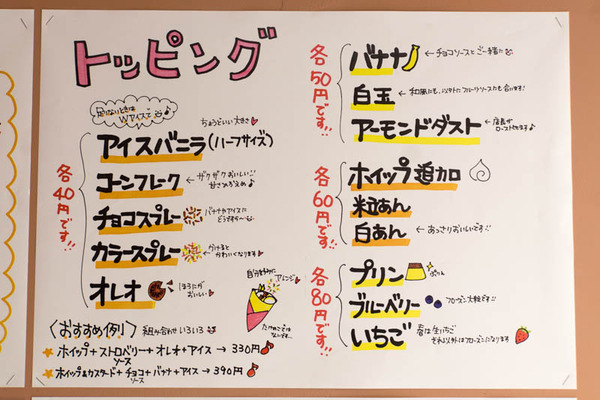 トッピング
足りないときは
Wアイスで♪
各40円です!!
ちょうどいい大きさ
アイスバニラ(ハーフサイズ)
コーンフレーク
ザクザクおいしい!!
甘さひかえめ♪
チョコスプレー
バナナやアイスに
どうぞ
カラースプレー
かけると
かわいくなります
オレオ
ほろにが
おいしい
自分好みに
アレンジ
〈おすすめ例〉 組み合わせいろいろ
ホイップ+ストロベリーソース+オレオ+アイス → 330円
ホイップ&カスタード+チョコソース+バナナ+アイス → 390円
各50円です!!
バナナ
←チョコソースとご一緒に
白玉
← 和風にも、以外にフルーツソースも合います!
アーモンドダスト
←店長が
ローストしてます♪
各60円です!!
ホイップ追加
粒あん
白あん
← あっさりおいしいです
各80円です!!
プリン
ブルーベリー
フローズン大粒です
いちご
春は生いちご
それ以外はフローズンになります